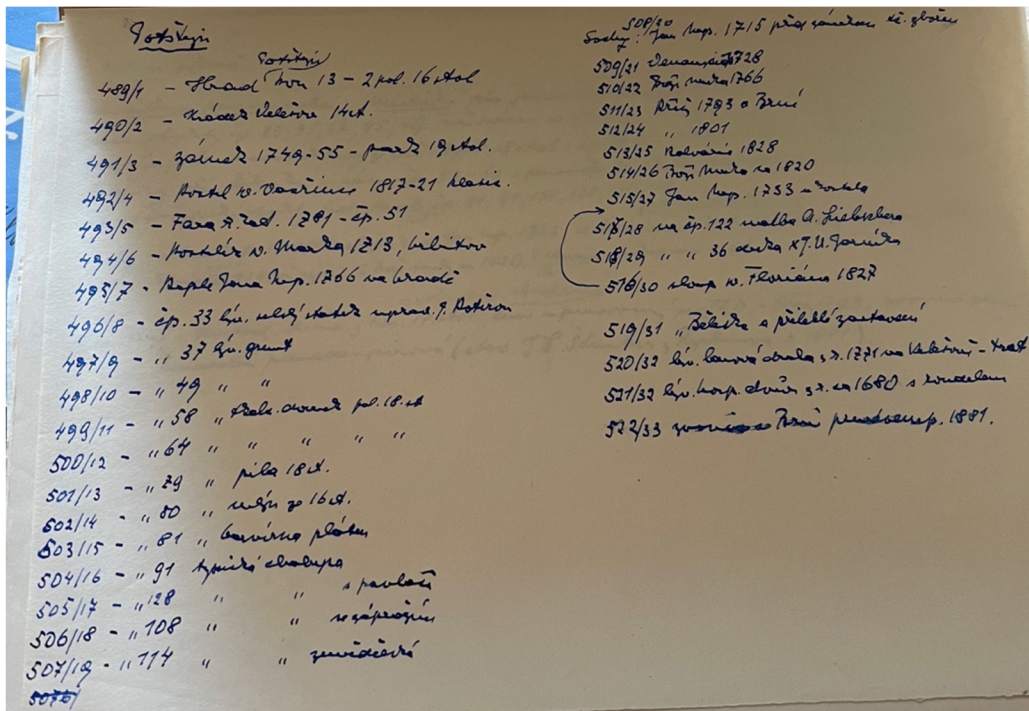 Potštejn
Potštejn
489/1 - Hrad kon 13 - 2 pol. 16 stol.
490/2 - hrádek Velešov 14 st.
491/3 - zámek 1749-55 - park 19 stol.
492/4 - kostel sv. Vavřince 1817-21 klasic.
493/5 - Fara 1781 - čp. 51
494/6 - kostelík sv. Marka 1713, hřbitov
495/7 - kaple Jana Nep. 1766 na hradě
496/8 - čp. 33 býv. statek uprav. J.
497/9 - " 37 býv. grunt
498/10 - " 49 " "
499/11 - " 58 " domek pol. 18. st
500/12 - " 64 " " " " "
501/13 - " 79 " pila 18 st.
502/14 - " 80 " mlýn ze 16 st.
503/15 - " 81 " barvírna pláten
504/16 - " 91 typická chalupa
505/17 - " 128 " " s pavlačí
506/18 - " 108 " " se zápražím
507/19 - " 114 " "
508/20
Sochy: Jan Nep. 1715 před zámkem
509/21 1728
510/22 Boží muka 1766
511/23 Kříž 1793 o Brné
512/24 " 1801
513/25 Kalvárie 1828
514/26 Boží muka ca 1820
515/27 Jan Nep. 1733 u kostela
517/28 na čp. 122 malba A.
518/29 " " 36 deska J. U. Jarníka
516/30 sloup sv. Floriána 1827
519/31 "Bělidla a přilehlé zastavení
520/32 býv. z r. 1771 na
521/32 býv. hosp. dvůr z r. ca 1680 s rondelem
522/33 Brné 1881.